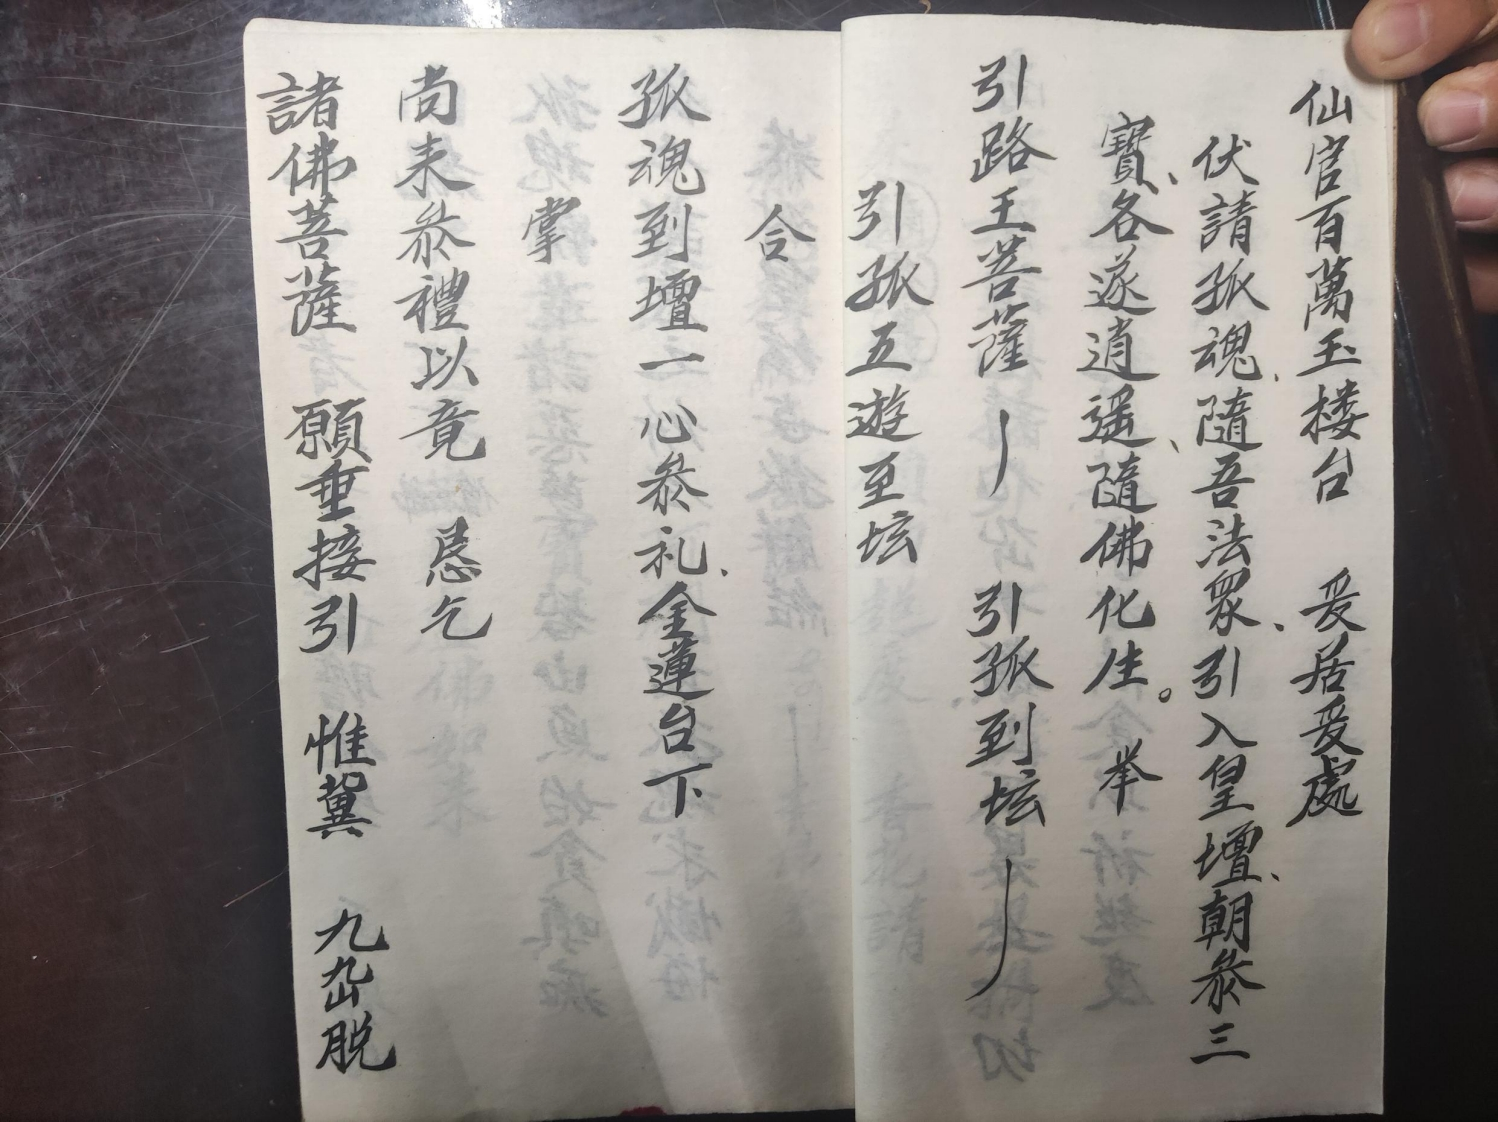 仙官百萬玉楼台 爰居爰處
伏請孤魂、隨吾法眾、引入皇壇、朝叅三
寶、各遂逍遥、隨佛化生。 举
引路王菩薩 引孤到坛
引孤五遊至坛
合
孤魂到壇一心叅礼、金蓮台下
掌
尚来叅禮以竟 恳乞
諸佛菩薩 願垂接引 惟冀 九旮脱